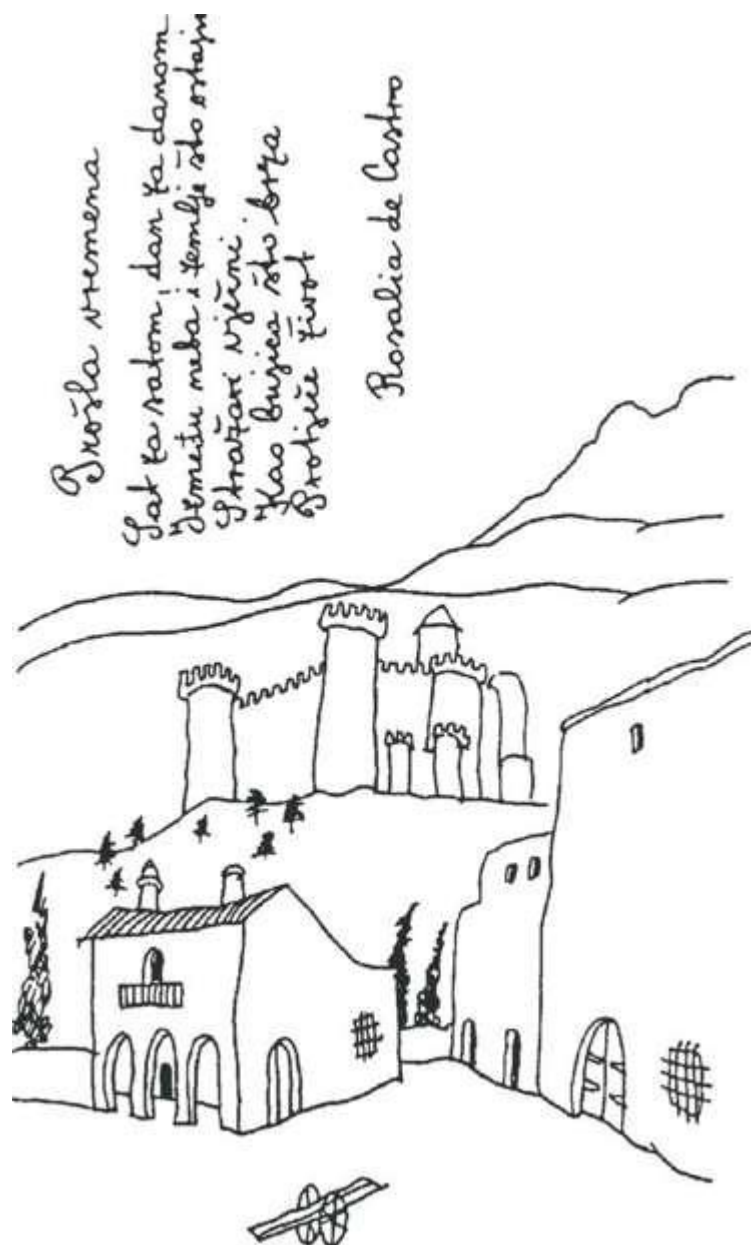 Prošla vremena
Sat za satom, dan za danom
Između neba i zemlje što ostaju
Stražari vječni
Kao bujica što brza
Protječe život
Rosalia de Castro